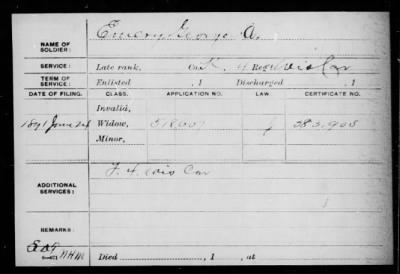 NAME OF SOLDIER: Emery, George A.
SERVICE: Late rank, Co. 4 Reg't Wis Cav
TERM OF SERVICE: Enlisted , 1 Discharged , 1
DATE OF FILING. CLASS. APPLICATION NO. LAW CERTIFICATE NO.
Invalid,
1891 June 24 Widow, 518607 383.908
Minor,
ADDITIONAL SERVICES: F. 4 Wis Cav
REMARKS:
Died , 1 , at